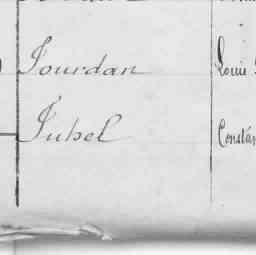 Jourdan Louis
Juhel Constan